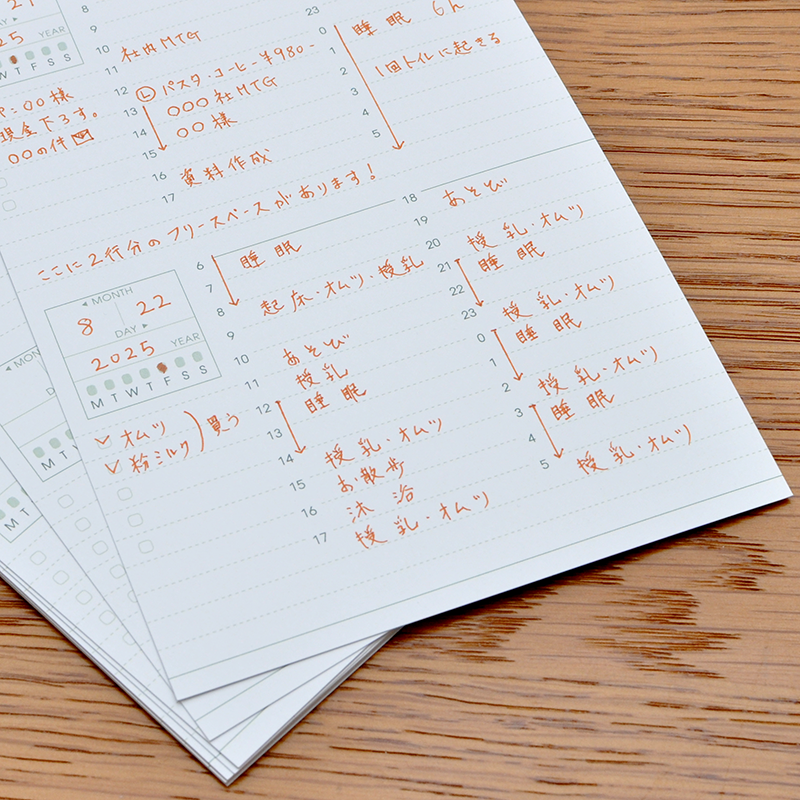 21
DAY ▶
25
YEAR
W T F S S
8
9
10
11 社内MTG
12 Ⓛ パスタ・コーヒー ¥980-
13 〇〇〇社MTG
14 〇〇様
15
16 資料作成
17
23
0 睡眠 6h
1
2 1回トイレに起きる
3
4
5
〇〇様
現金下ろす。
〇〇の件
ここに2行分のフリースペースがあります!
◀ MONTH
8 22
DAY ▶
2025 YEAR
M T W T F S S
✓ オムツ
✓ 粉ミルク ) 買う
6 睡眠
7
8 起床・オムツ・授乳
9
10 あそび
11 授乳
12 睡眠
13
14 授乳・オムツ
15 お散歩
16 沐浴
17 授乳・オムツ
18 あそび
19
20 授乳・オムツ
21 睡眠
22
23 授乳・オムツ
0 睡眠
1
2 授乳・オムツ
3 睡眠
4
5 授乳・オムツ
◀ MON
M T W
M T